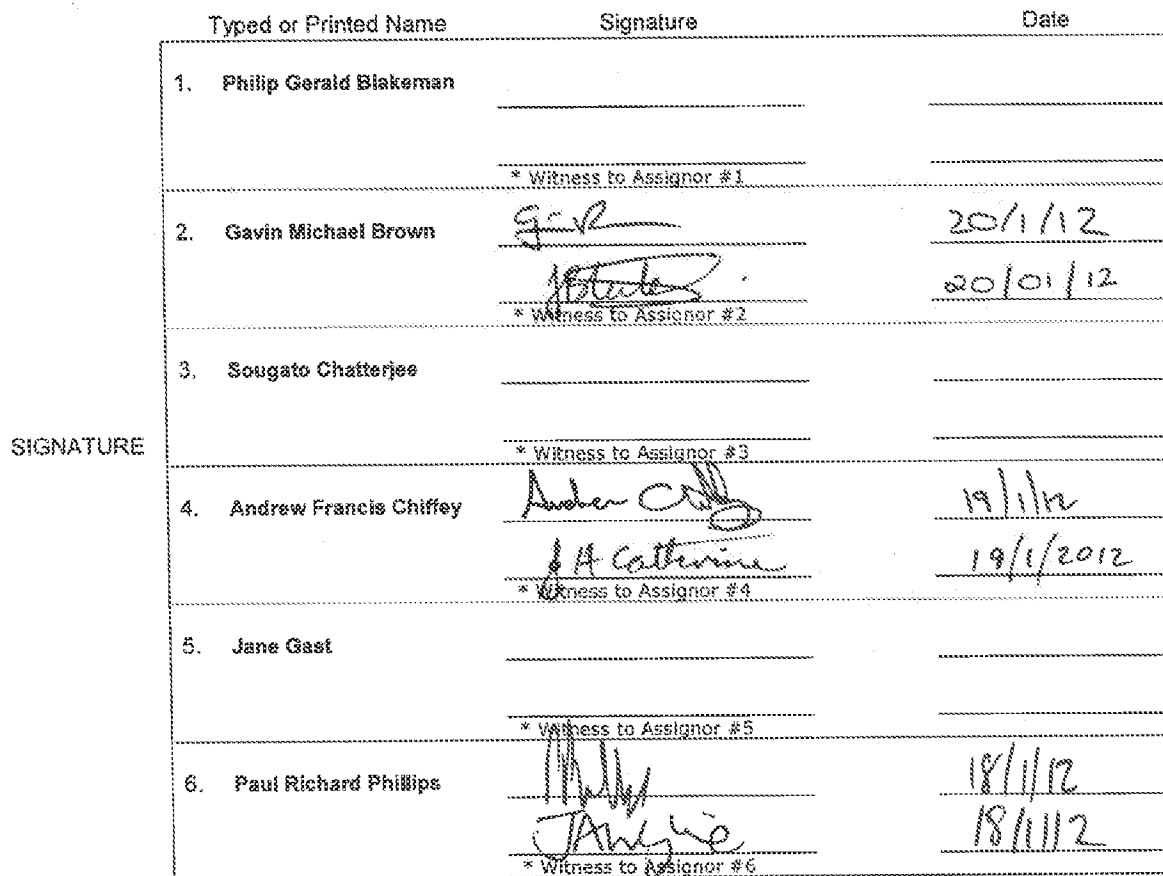 Typed or Printed Name Signature Date
1. Philip Gerald Blakeman
* Witness to Assignor #1
2. Gavin Michael Brown 20/1/12
20/01/12
* Witness to Assignor #2
3. Sougato Chatterjee
SIGNATURE
* Witness to Assignor #3
4. Andrew Francis Chiffey Andrew 19/1/12
J A Catherine 19/1/2012
* Witness to Assignor #4
5. Jane Gast
* Witness to Assignor #5
6. Paul Richard Phillips 18/1/12
18/1/12
* Witness to Assignor #6